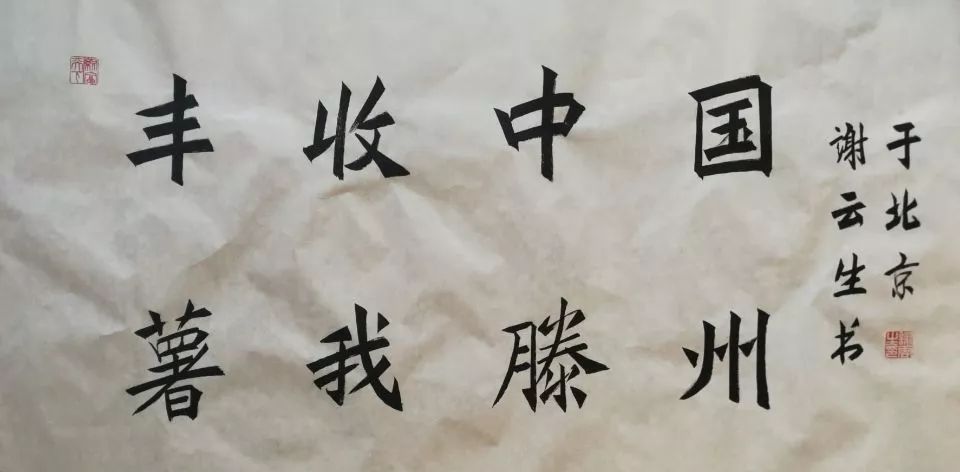 丰收中国
薯我滕州
于北京
谢云生书